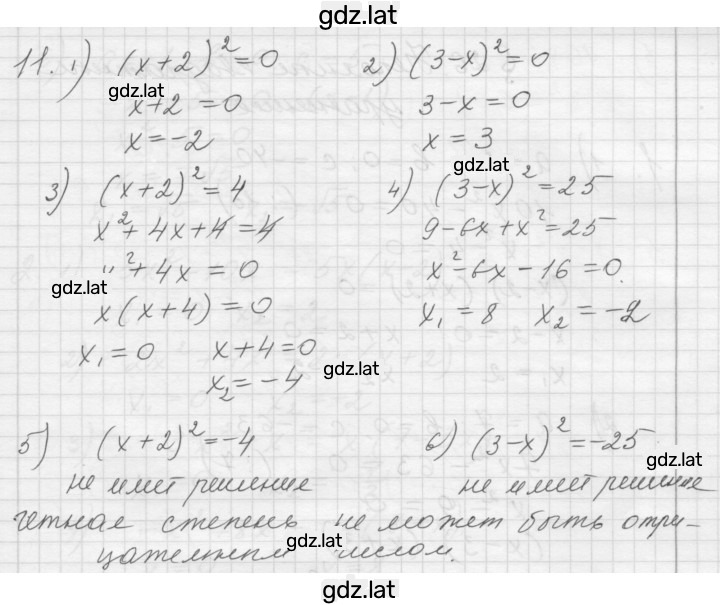 gdz.lat
11. 1) (x+2)² = 0 2) (3-x)² = 0
gdz.lat
x+2 = 0 3-x = 0
x = -2 x = 3
gdz.lat
3) (x+2)² = 4 4) (3-x)² = 25
x² + 4x + 4 = 4 9-6x+x² = 25
² + 4x = 0 x² - 6x - 16 = 0
gdz.lat
x(x+4) = 0 x₁ = 8 x₂ = -2
x₁ = 0 x+4 = 0
gdz.lat
x₂ = -4
5) (x+2)² = -4 6) (3-x)² = -25
gdz.lat
не имеет решение не имеет решение
четная степень не может быть отри-
gdz.lat
цательным числом.
gdz.lat